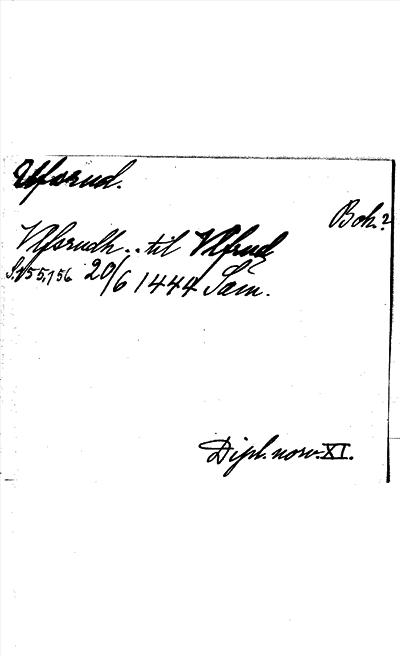 Ulfsrud.
Boh.?
Vlfsrudh.. til Vlfrud
S. 155, 156 20/6 1444 Sam.
Dipl. norv. XI.